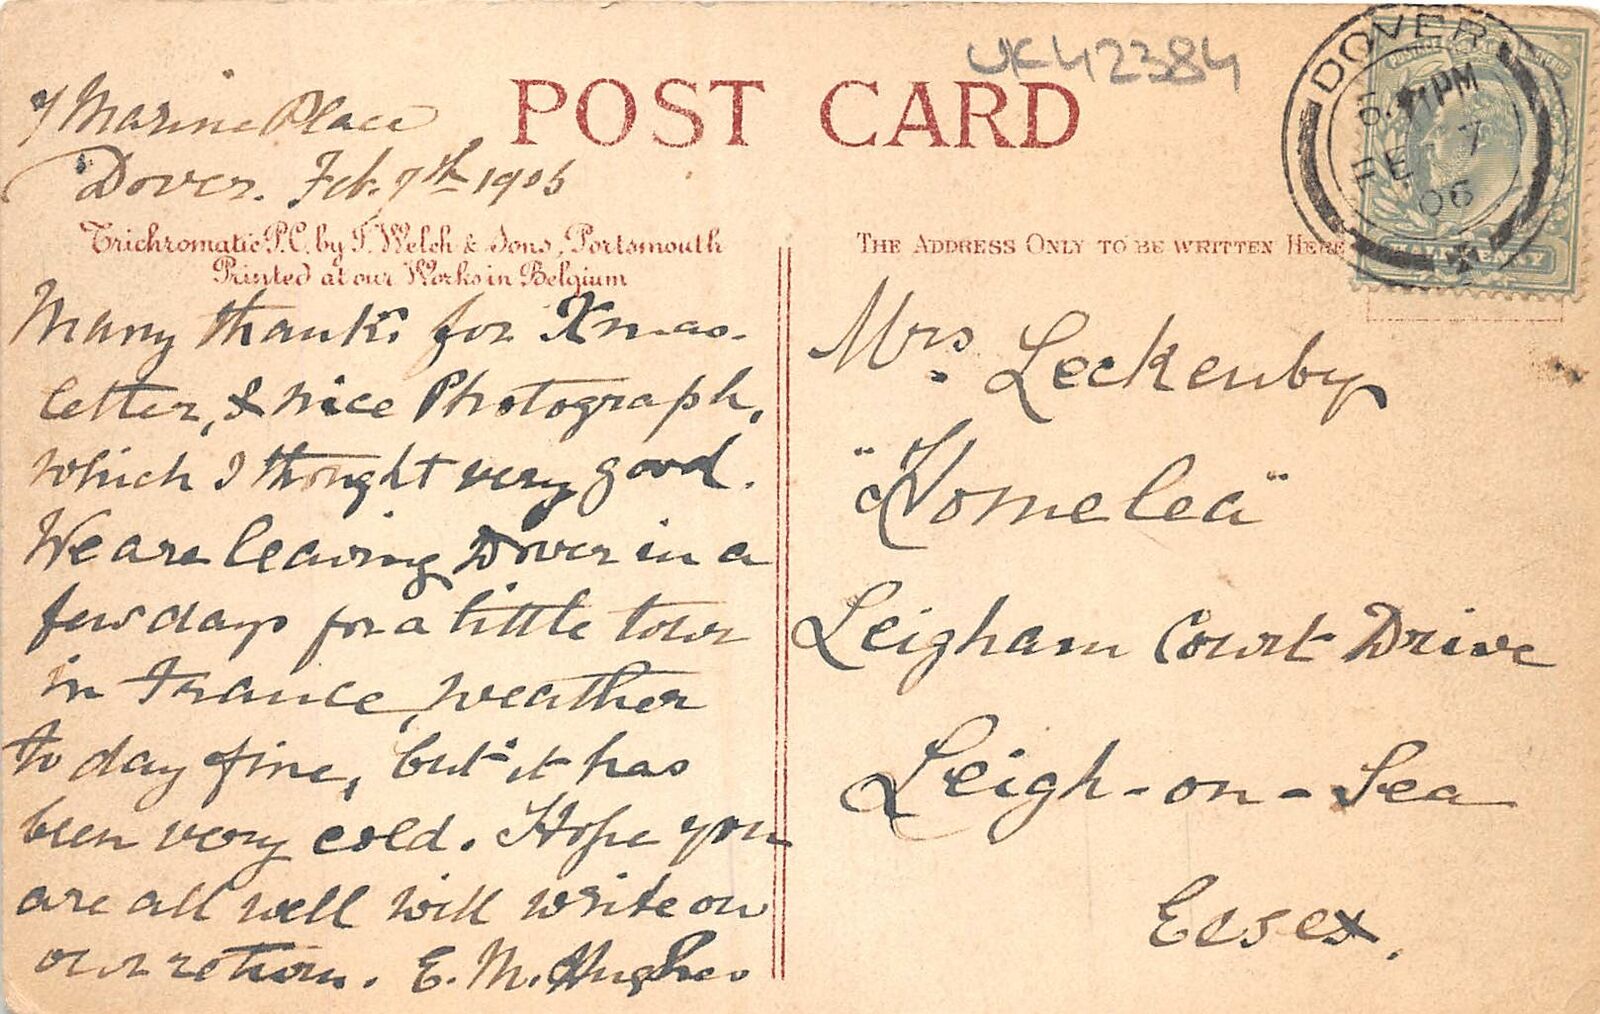 UK42384
POST CARD
7 Marine Place
Dover. Feb. 7th 1906
Trichromatic P.C. by J. Welch & Sons, Portsmouth
Printed at our Works in Belgium
Many thanks for Xmas
letter, & nice Photograph,
which I thought very good.
We are leaving Dover in a
few days for a little tour
in France, weather
to day fine, but it has
been very cold. Hope you
are all well will write on
our return. E. M. Hughes
DOVER
PM
FE 7
06
THE ADDRESS ONLY TO BE WRITTEN HERE
Mrs Leckenby
"Homelea"
Leigham Court Drive
Leigh-on-Sea
Essex.